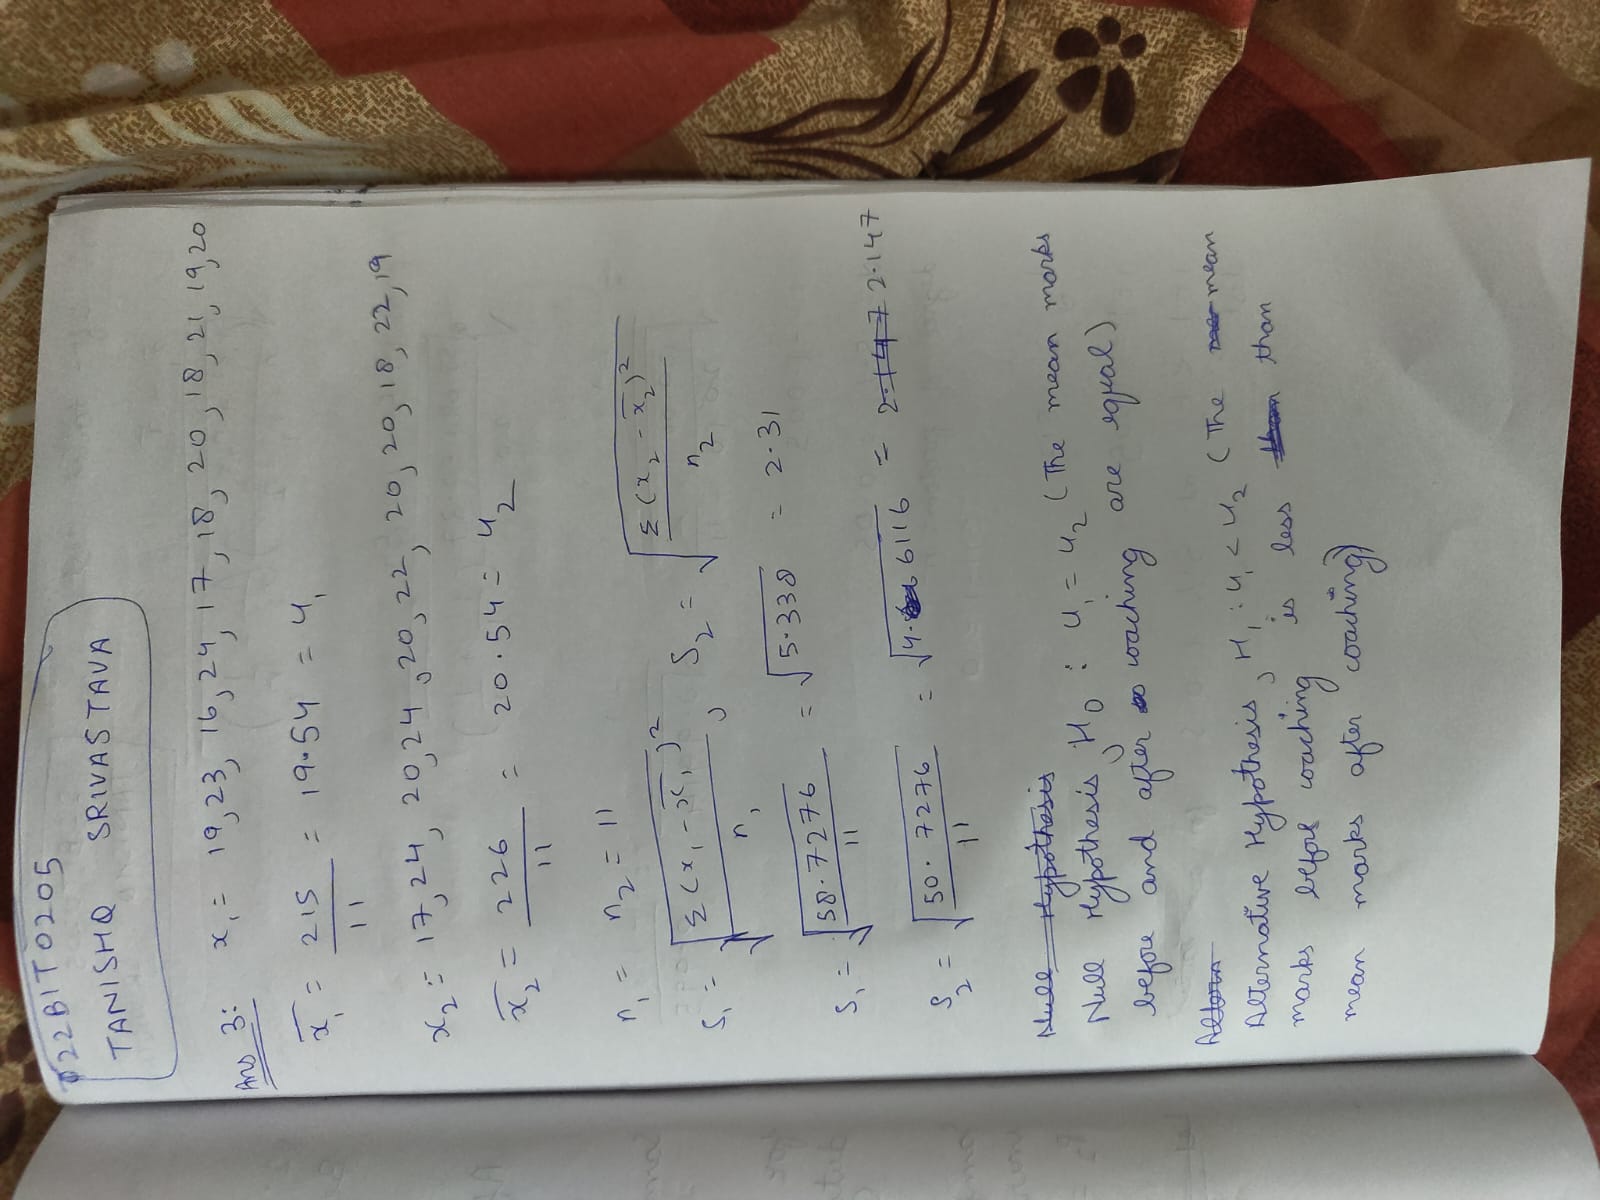 22BIT0205
TANISHQ SRIVASTAVA
Ans 3: x₁ = 19, 23, 16, 24, 17, 18, 20, 18, 21, 19, 20
x̄₁ = 215/11 = 19.54 = u₁
x₂ = 17, 24, 20, 24, 20, 22, 20, 20, 18, 22, 19
x̄₂ = 226/11 = 20.54 = u₂
n₁ = n₂ = 11
S₁ = √(Σ(x₁ - x̄₁)²/n₁), S₂ = √(Σ(x₂ - x̄₂)²/n₂)
S₁ = √(58.7276/11) = √5.338 = 2.31
S₂ = √(50.7276/11) = √4.6116 = 2.147 2.147
Null Hypothesis
Null Hypothesis, H₀ : u₁ = u₂ (The mean marks
before and after coaching are equal)
Altern
Alternative Hypothesis, H₁ : u₁ < u₂ (The mean
marks before coaching is less than than
mean marks after coaching)